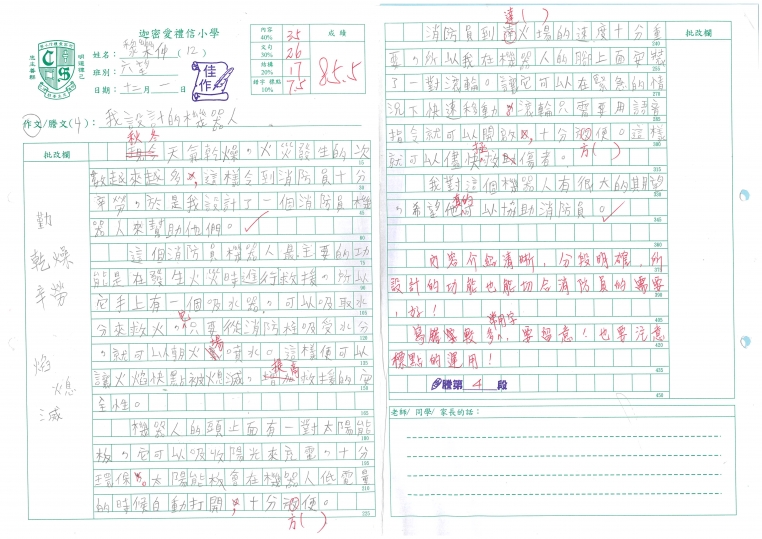 迦密愛禮信小學
姓名：
(12)
班別：六望
日期：十二月一
佳作
內容 40% 35
文句 30% 26
結構 20% 17
錯字 標點 10% 7.5
成績
85.5
作文/謄文(4)：我設計的機器人
批改欄
勤
乾燥
辛勞
焰
熄
滅
秋冬
天氣乾燥。火災發生的次
數越來越多，這樣令到消防員十分
辛勞。於是我設計了一個消防員機
器人來幫助他們。
這個消防員機器人最主要的功
能是在發生火災時進行救援。所以
它手上有一個吸水器。可以吸取水
分來救火。只要從消防栓吸受水分
。就可以朝火場噴水。這樣便可以
讓火焰快點被熄滅。提高救援的安
全性。
機器人的頭上面有一對太陽能
板。它可以吸收陽光來充電。十分
環保。太陽能板會在機器人低電量
的時候自動打開，十分便。
方( )
達( )
消防員到達火場的速度十分重
要。所以我在機器人的腳上面安裝
了一對滾輪。讓它可以在緊急的情
況下快速移動。滾輪只需要用語音
指令就可以開啟，十分便。這樣
方( )
就可以儘快拯救傷者。
我對這個機器人有很大的期望
。希望他真的可以協助消防員。
內容介紹清晰，分段明確，所
設計的功能也能切合消防員的需要
，好！
常用字
多，要留意！也要注意
標點的運用！
謄第 4 段
批改欄
老師/ 同學/ 家長的話：